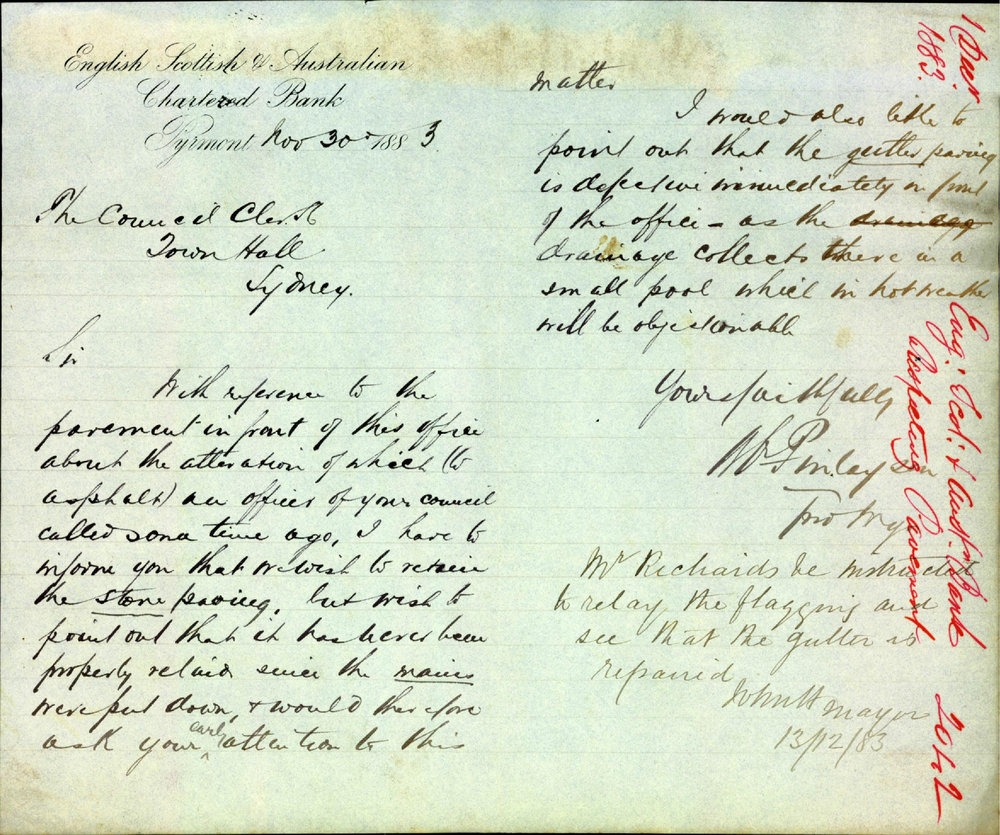 English Scottish & Australian
Chartered Bank
Pyrmont Nov 30th 1883.
The Council Clerk
Town Hall
Sydney.
Sir
With reference to the
pavement in front of this office
about the alteration of which (to
asphalt) an officer of your council
called some time ago, I have to
inform you that we wish to retain
the stone paving, but wish to
point out that it has never been
properly relaid since the mains
were put down, & would therefore
ask your early attention to this
matter
I would also like to
point out that the gutter paving
is defective immediately in front
of the office - as the drainage
drainage collects there in a
small pool which in hot weather
will be objectionable
Yours faithfully
Finlayson
Mr Richards be instructed
to relay the flagging and
see that the gutter is
repaired
John H
Mayor
13/12/83
1 Decr
1883.
Eng: Scot: & Austn. Bank
Respecting Pavement
2042